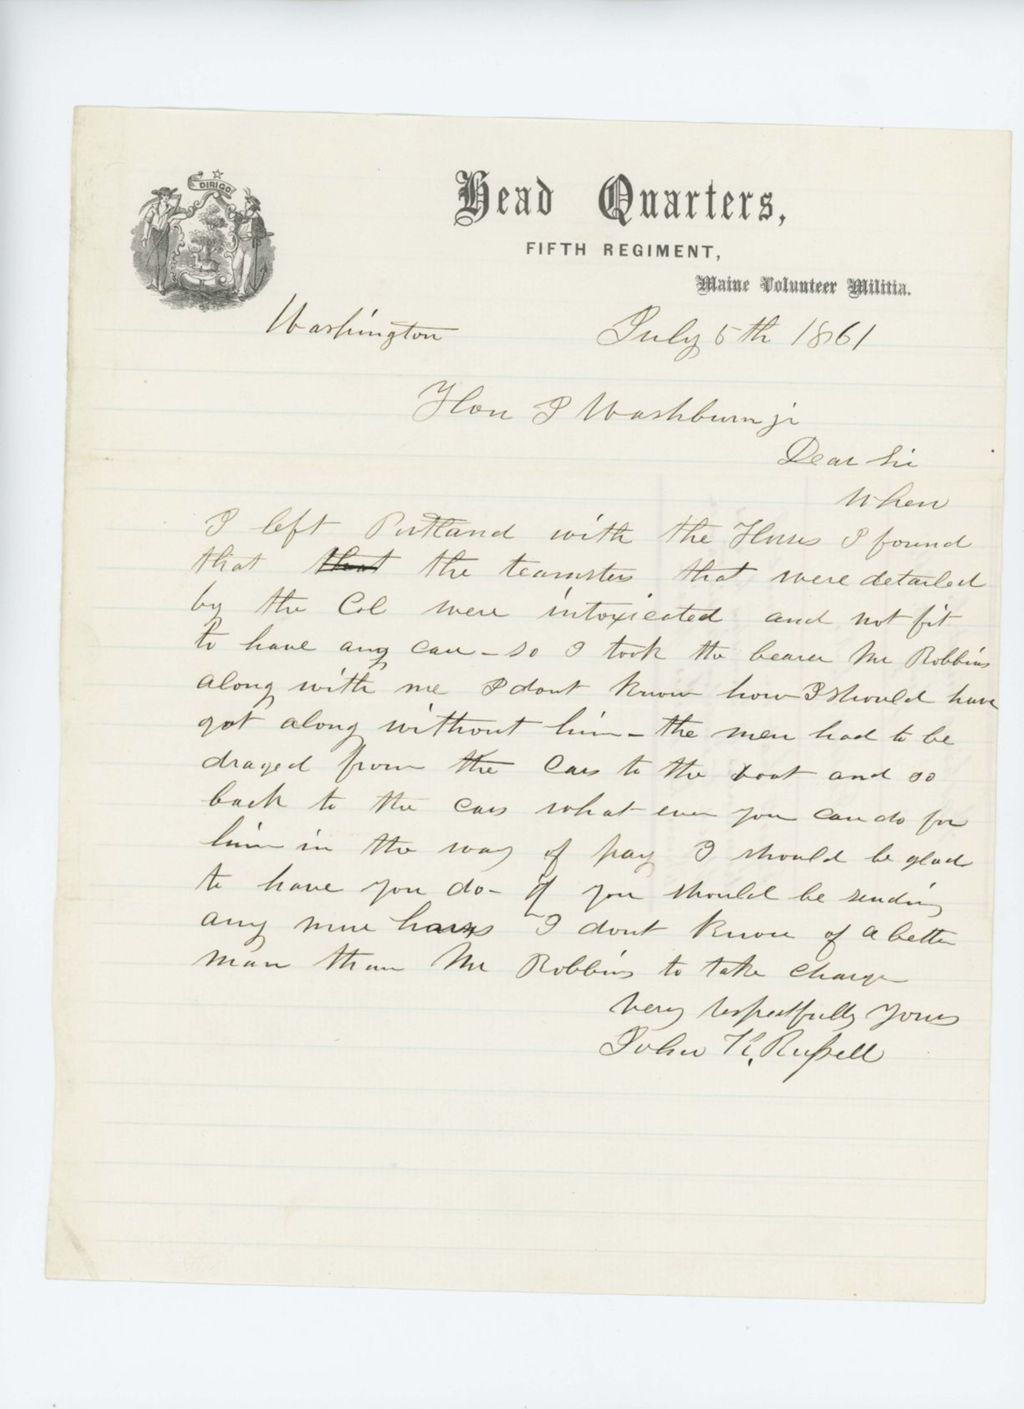 DIRIGO
Head Quarters,
FIFTH REGIMENT,
Maine Volunteer Militia.
Washington July 5th 1861
Hon I Washburn jr
Dear Sir
When
I left Portland with the Horses I found
that that the teamsters that were detailed
by the Col were intoxicated and not fit
to have any care - so I took the bearer Mr Robbins
along with me I dont know how I should have
got along without him - the men had to be
draged from the Cars to the boat and so
back to the cars what ever you can do for
him in the way of pay I should be glad
to have you do - If you should be sending
any more horses I dont know of a better
man than Mr Robbins to take charge
Very respectfully Yours
John K. Russell